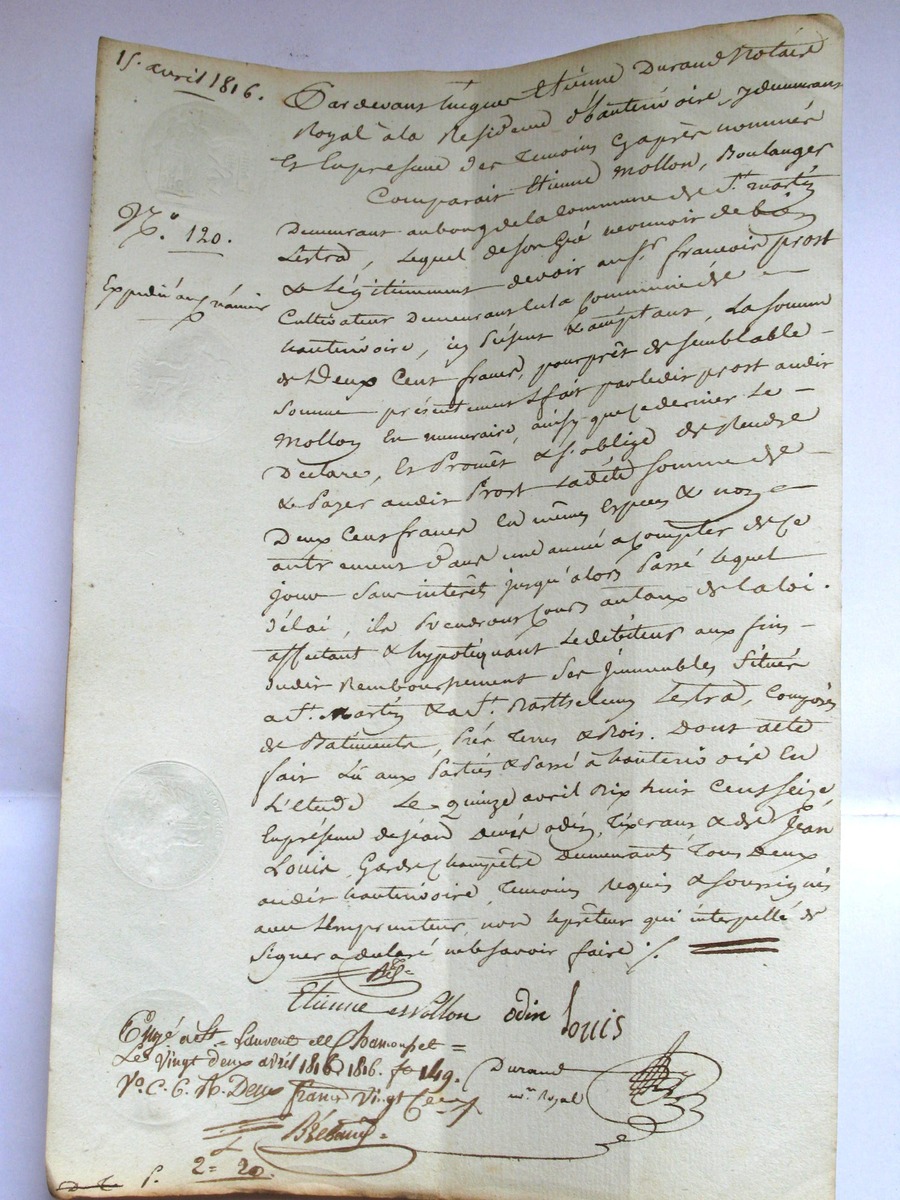 15. avril 1816.
Pardevant Etienne Durand Notaire
Royal à la Residence d'hauterivoire, y demeurant
Et En presence des Temoins Cyaprès nommés
N.° 120.
Comparait Etienne Mollon, Boulanger
Demeurant au bourg de la Commune de St. martin
Lestrà, Lequel de son Gré reconnoit de bien
Expédié au créancier
& Légitimement devoir au Sr. francois prost
Cultivateur Demeurant en la Commune de
hauterivoire, icy Présent & acceptant, La somme
de Deux Cent francs, pour prêt de semblable
Somme présentement fait par ledit prost audit
Mollon En numeraire, ainsy que ce dernier Le
Declare, Et Promet & s'oblige de Rendre
& Payer audit Prost Ladite somme de
Deux Cent francs En mêmes Espèces & non
autrement Dans une année à Compter de Ce
jour Sans interêt jusqu'alors Passé lequel
délai, ils Prendront Cours au taux de la loi.
affectant & hypotéquant Le débiteur aux fins
dudit Remboursement Ses Jmmeubles Situés
a St. Martin & a St. Barthelemy Lestrà, Composés
de Batiments, Prés Terres & Bois. Dont acte
fait Lû aux Parties & Passé à hauterivoire En
L'etude Le quinze avril Dix huit Cent seize
En présence de jean Odin, Tixerant & de Jean
Louis Garde Champêtre Demeurants Tous Deux
audit hauterivoire, Temoins Requis & soussignés
avec L'emprunteur, non le prêteur qui interpellé de
Signer a declaré ne le savoir faire ./.
Etienne Mollon odin Louis
à St. Laurent de Chamousset
Le Vingt deux avril 1816 1816. fo 149.
Vo. C. 6. R. Deux francs Vingt Cent
Durand
n.re Royal
2 = 20.